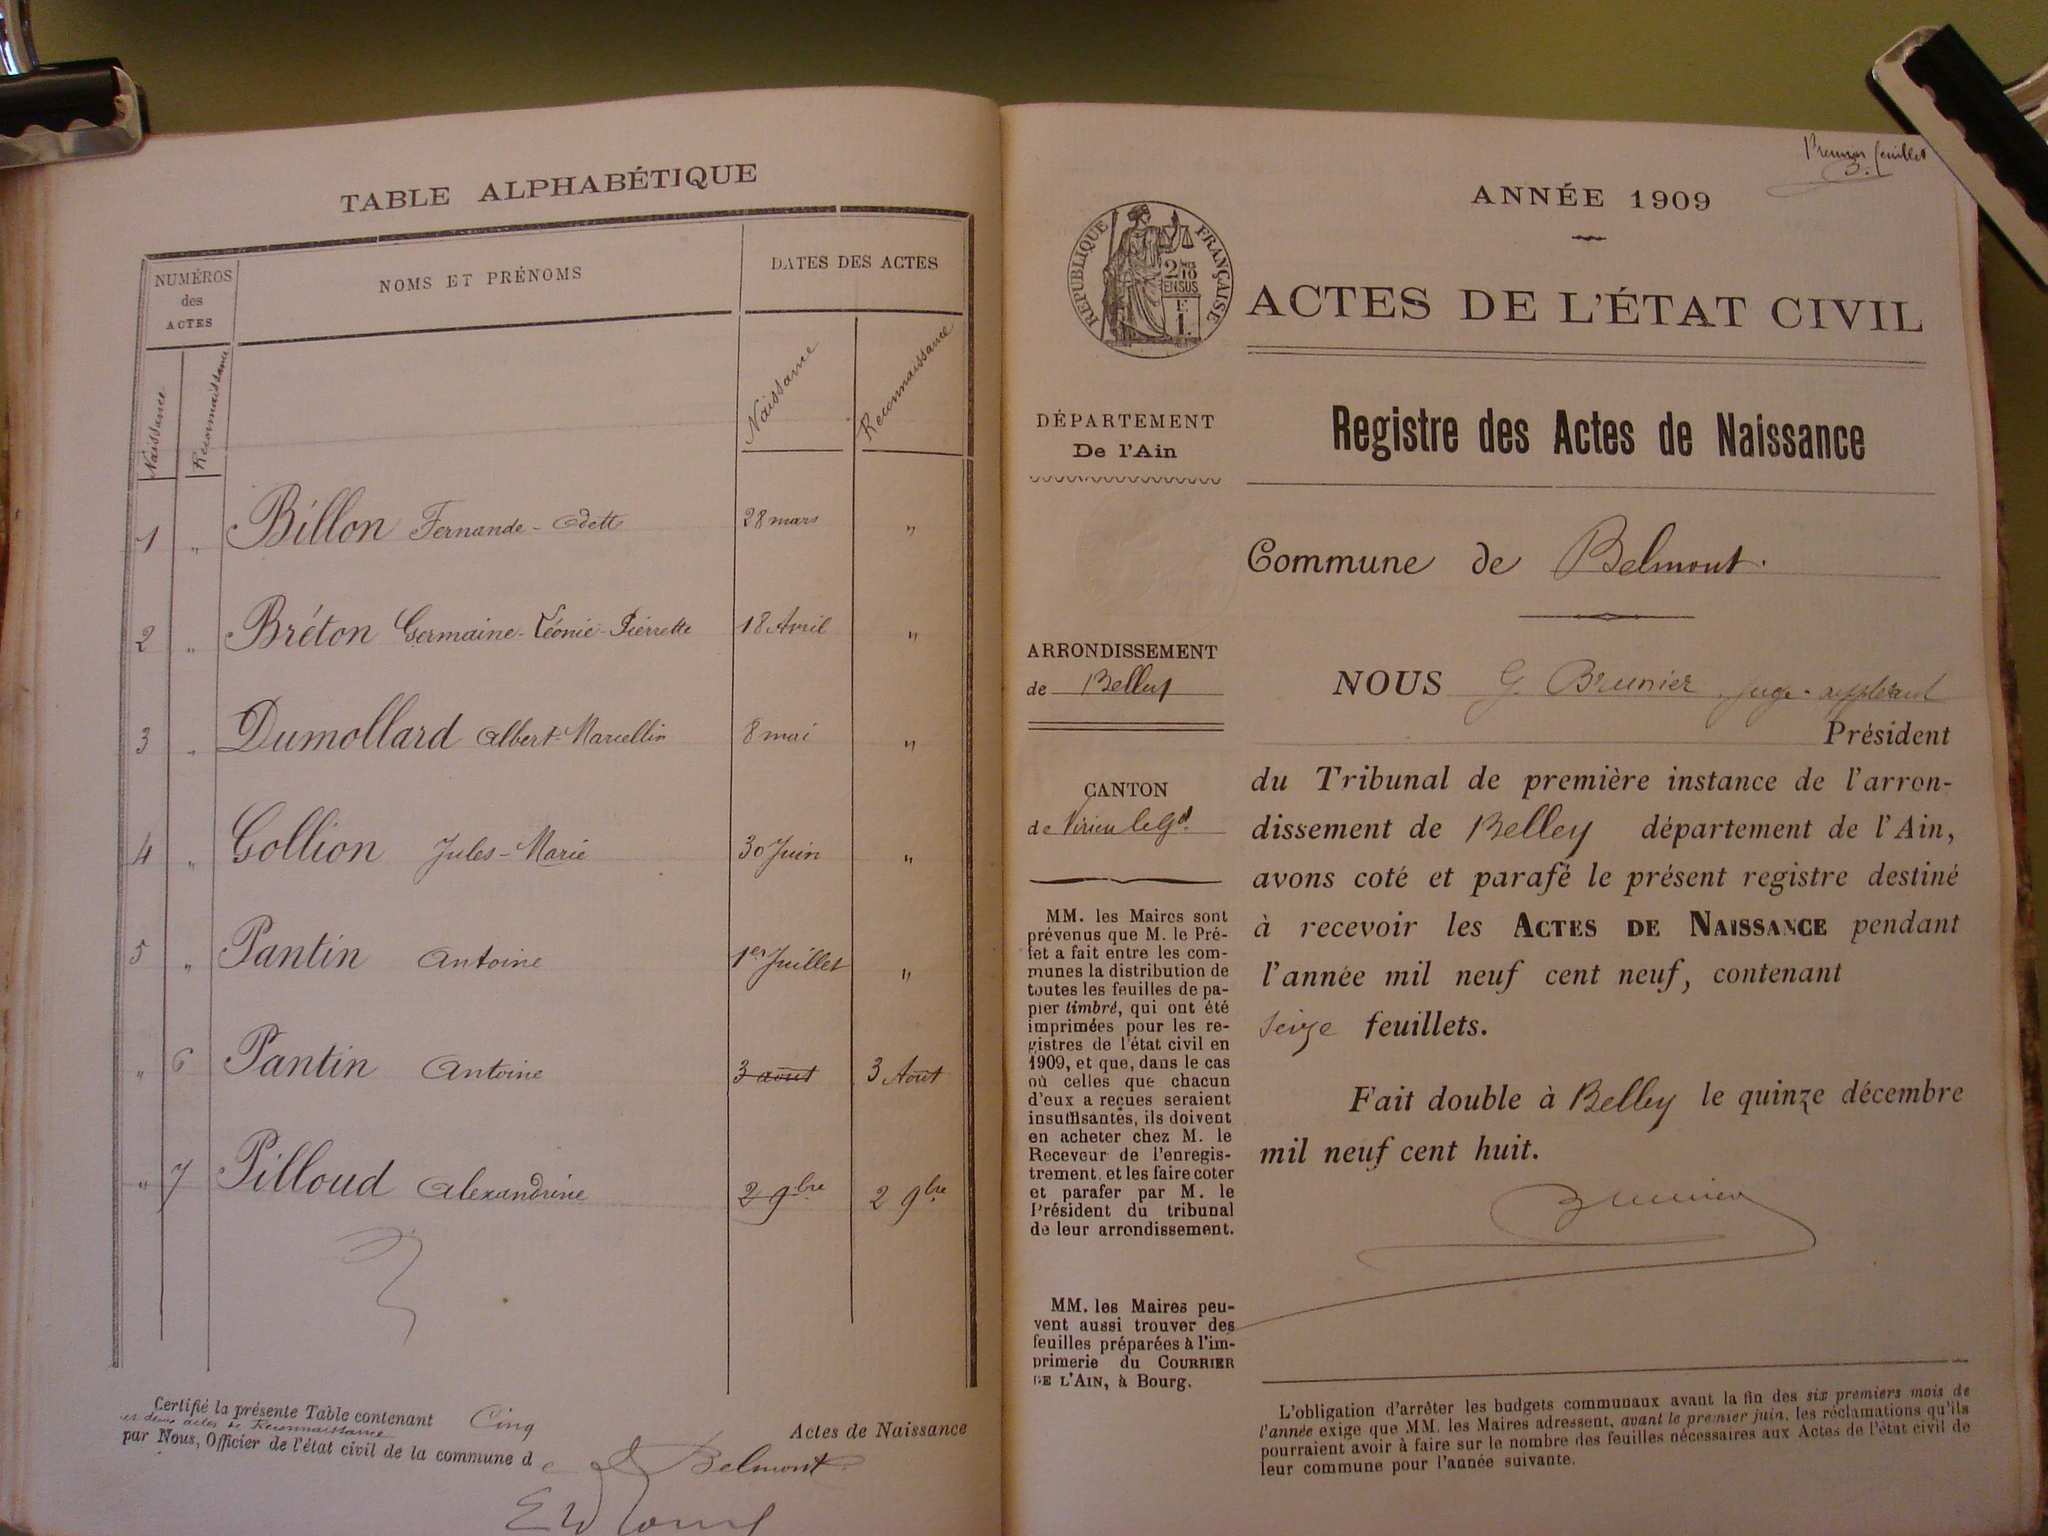 TABLE ALPHABÉTIQUE
NUMÉROS
des
ACTES
NOMS ET PRÉNOMS
DATES DES ACTES
Naissance
Reconnaissance
Naissance
Reconnaissance
1 " Billon Fernande-Odette 28 mars "
2 " Bréton Germaine-Léonie-Pierrette 18 Avril "
3 " Dumollard Albert-Marcellin 8 mai "
4 " Gollion Jules-Marie 30 Juin "
5 " Pantin Antoine 1er Juillet "
" 6 Pantin Antoine 3 août 3 Août
" 7 Pilloud Alexandrine 2 9bre 2 9bre
Certifié la présente Table contenant Cinq Actes de Naissance
et deux actes de Reconnaissance
par Nous, Officier de l'état civil de la commune de Belmont
Premier feuillet
ANNÉE 1909
RÉPUBLIQUE FRANÇAISE
2/10
EN SUS
1 F.
ACTES DE L'ÉTAT CIVIL
DÉPARTEMENT
De l'Ain
Registre des Actes de Naissance
Commune de Belmont.
ARRONDISSEMENT
de Belley
CANTON
de Virieu le Gd.
MM. les Maires sont
prévenus que M. le Pré-
fet a fait entre les com-
munes la distribution de
toutes les feuilles de pa-
pier timbré, qui ont été
imprimées pour les re-
gistres de l'état civil en
1909, et que, dans le cas
où celles que chacun
d'eux a reçues seraient
insuffisantes, ils doivent
en acheter chez M. le
Receveur de l'enregis-
trement, et les faire coter
et parafer par M. le
Président du tribunal
de leur arrondissement.
MM. les Maires peu-
vent aussi trouver des
feuilles préparées à l'im-
primerie du COURRIER
DE L'AIN, à Bourg.
NOUS G. Brunier Juge suppléant
Président
du Tribunal de première instance de l'arron-
dissement de Belley département de l'Ain,
avons coté et parafé le présent registre destiné
à recevoir les ACTES DE NAISSANCE pendant
l'année mil neuf cent neuf, contenant
seize feuillets.
Fait double à Belley le quinze décembre
mil neuf cent huit.
Brunier
L'obligation d'arrêter les budgets communaux avant la fin des six premiers mois de
l'année exige que MM. les Maires adressent, avant le premier juin, les réclamations qu'ils
pourraient avoir à faire sur le nombre des feuilles nécessaires aux Actes de l'état civil de
leur commune pour l'année suivante.